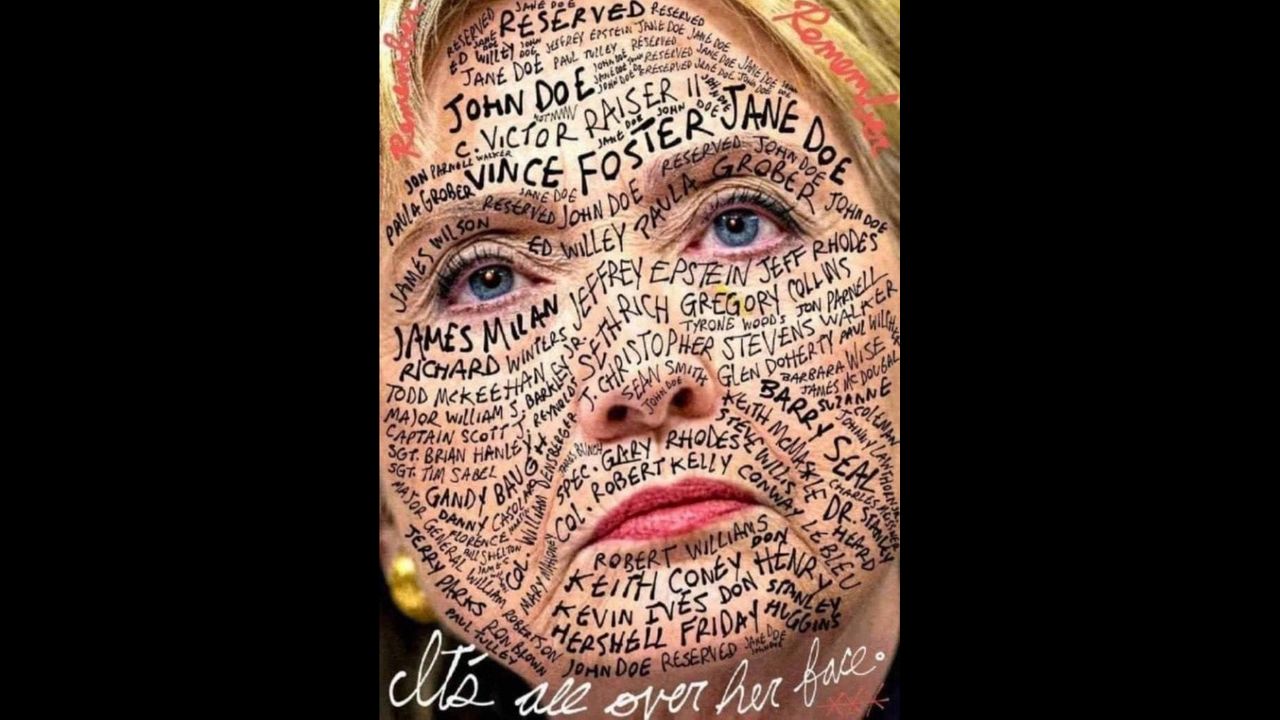 Remember
Remember
JANE DOE
RESERVED
RESERVED
RESERVED
ED WILLEY
JEFFREY EPSTEIN
JANE DOE
JANE DOE
JANE DOE
PAUL TULLEY
RESERVED
JOHN DOE
C. VICTOR RAISER II
JANE DOE
JON PARNELL WALKER
VINCE FOSTER
PAULA GROBER
JANE DOE
RESERVED
JOHN DOE
RESERVED
JOHN DOE
JAMES WILSON
ED WILLEY
PAULA GROBER
JOHN DOE
JAMES MILAN
JEFFREY EPSTEIN
JEFF RHODES
RICHARD WINTERS
SETH RICH
GREGORY COLLINS
TYRONE WOODS
JON PARNELL WALKER
TODD McKEEHAN
J. CHRISTOPHER STEVENS
MAJOR WILLIAM S. BARKLEY JR.
SEAN SMITH
GLEN DOHERTY
PAUL WILCHER
CAPTAIN SCOTT J. REYNOLDS
JOHN DOE
BARBARA WISE
JAMES McDOUGAL
SGT. BRIAN HANLEY
SGT. TIM SABEL
BARRY SEAL
SUZANNE COLEMAN
KEITH McMASKLE
JAMES BUNCH
SPEC. GARY RHODES
STEVE WILLIS
MAJOR GENERAL WILLIAM ROBERTSON
GANDY BAUGH
COL. WILLIAM DENSBERGER
COL. ROBERT KELLY
CONWAY LEBLEU
DR. STANLEY HEARD
DANNY CASOLARO
FLORENCE MARTIN
BILL SHELTON
MARY MAHONEY
TERRY PARKS
ROBERT WILLIAMS
KEITH CONEY
DON HENRY
KEVIN IVES
DON
STANLEY HUGGINS
PAUL TULLEY
RON BROWN
HERSHELL FRIDAY
JOHN DOE
RESERVED
JANE DOE
It's all over her face.